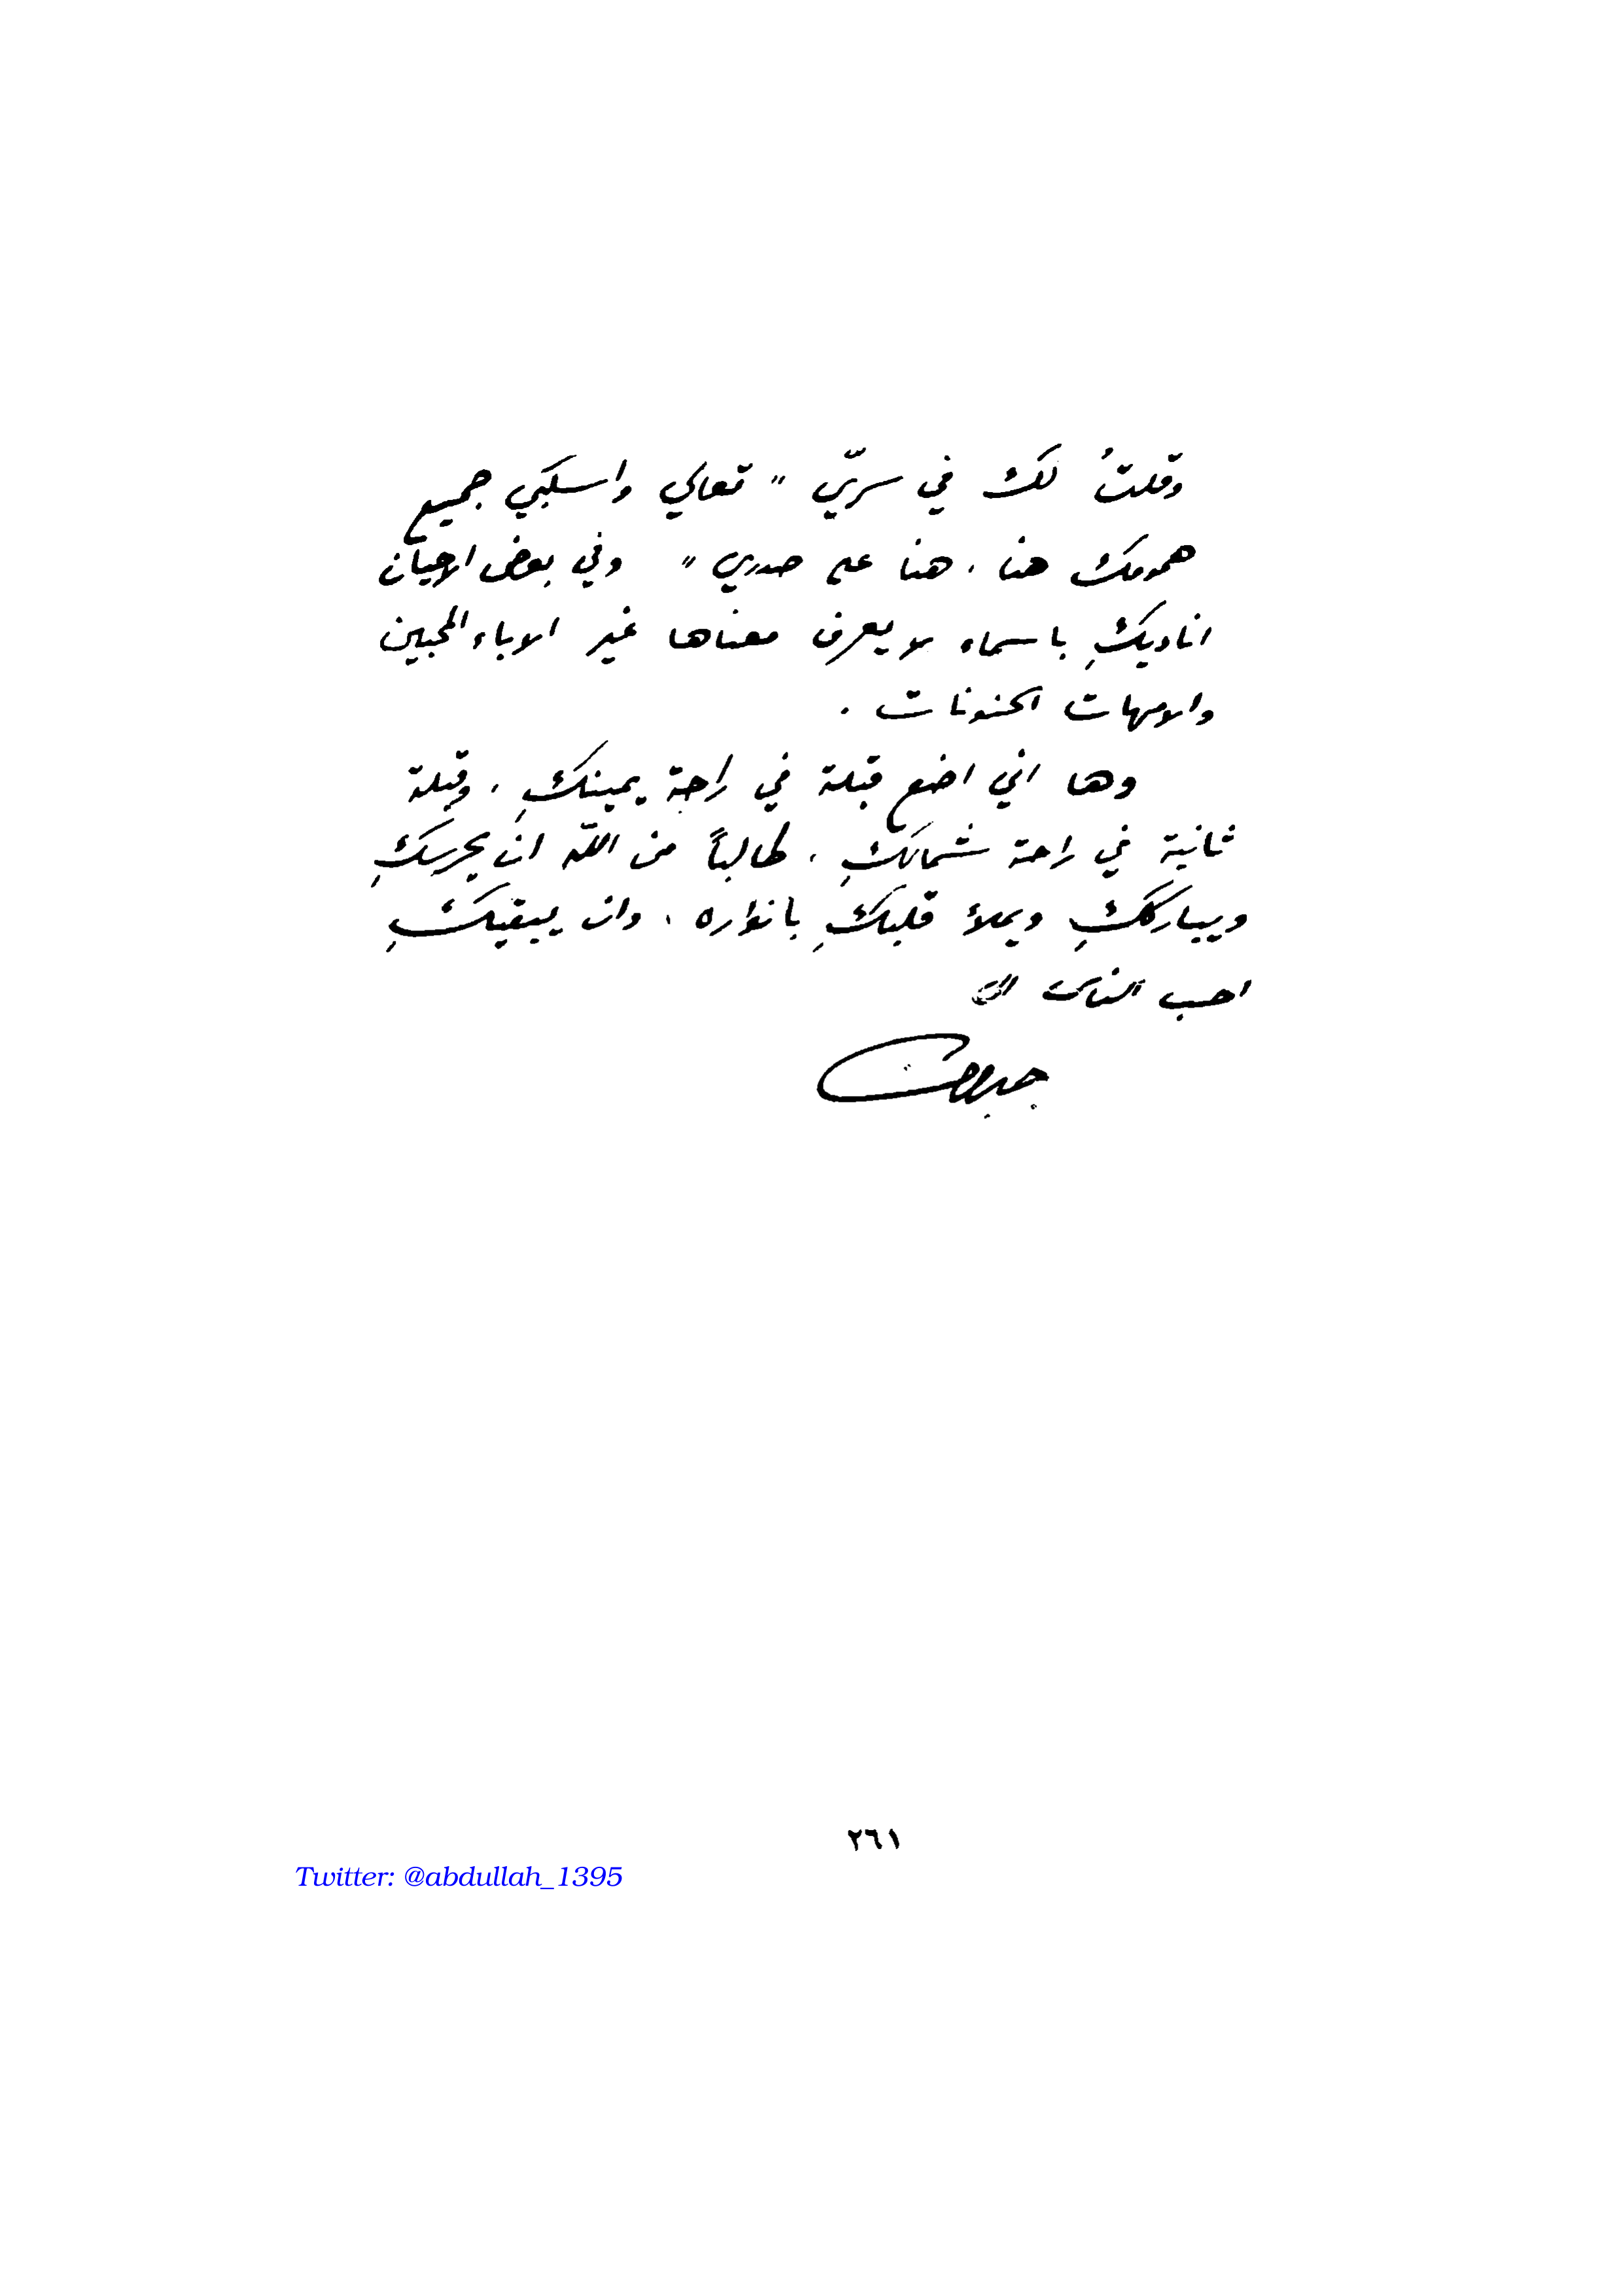 وقلتُ لك في سريّ " تعالي واسكبي جميع
همومك هنا ، هنا على صدري " وفي بعض الاحيان
اناديكِ باسماء لا يعرف معناها غير الاباء المحبين
والامهات الحنونات .
وها اني اضع قبلة في راحة يمينكِ ، وقبلة
ثانية في راحة شمالكِ ، طالباً من اللّه ان يحرسكِ
ويباركَكِ ويملأ قلبكِ بانواره ، وان يبقيكِ
احب الناس اليّ
جبران
٢٦١
Twitter: @abdullah_1395